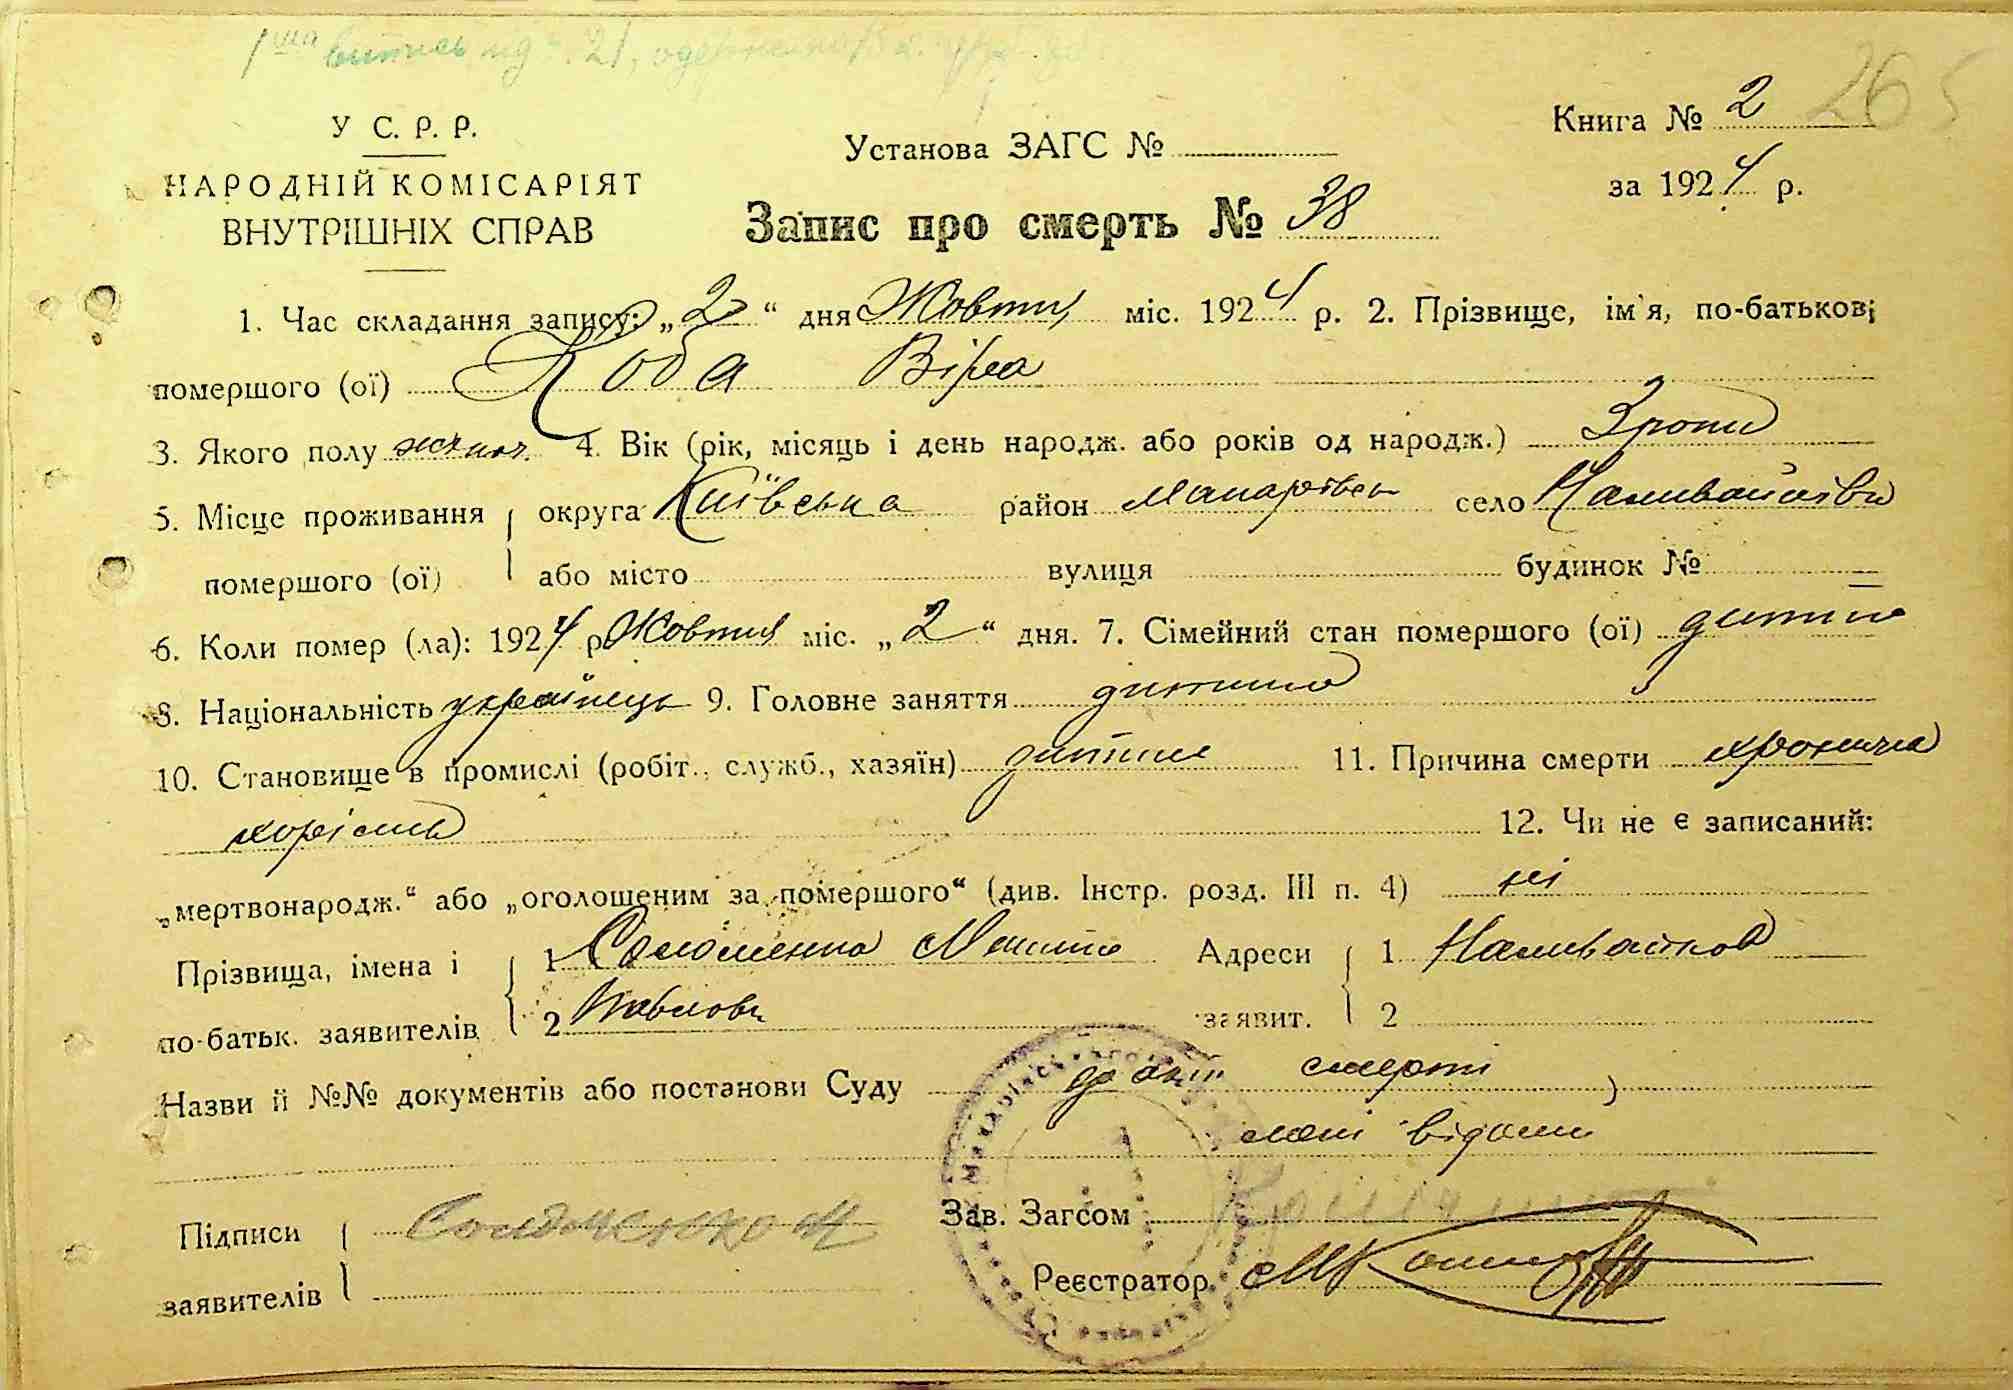 1ша випись
У С. Р. Р.
НАРОДНІЙ КОМІСАРІЯТ
ВНУТРІШНІХ СПРАВ
Установа ЗАГС №
Запис про смерть № 38
Книга № 2 265
за 1924 р.
1. Час складання запису: „2“ дня Жовтня міс. 1924 р. 2. Прізвище, ім'я, по-батькові
помершого (ої) Коба Віра
3. Якого полу жіноч. 4. Вік (рік, місяць і день народж. або років од народж.) 3 роки
5. Місце проживання округа Київська район Макарівськ село Наливайківка
помершого (ої) або місто вулиця будинок №
6. Коли помер (ла): 1924 р Жовтня міс. „2“ дня. 7. Сімейний стан помершого (ої) дитина
8. Національність українець 9. Головне заняття дитина
10. Становище в промислі (робіт., служб., хазяїн) дитина 11. Причина смерти хронична
хорість 12. Чи не є записаний:
„мертвонародж.“ або „оголошеним за помершого“ (див. Інстр. розд. III п. 4) ні
Прізвища, імена і 1 Соломенко Микита Адреси 1 Наливайков
по-батьк. заявителів 2 Павлов заявит. 2
Назви й №№ документів або постанови Суду смерті
мені відомі
Підписи Соломенко М Зав. Загсом
заявителів Реєстратор